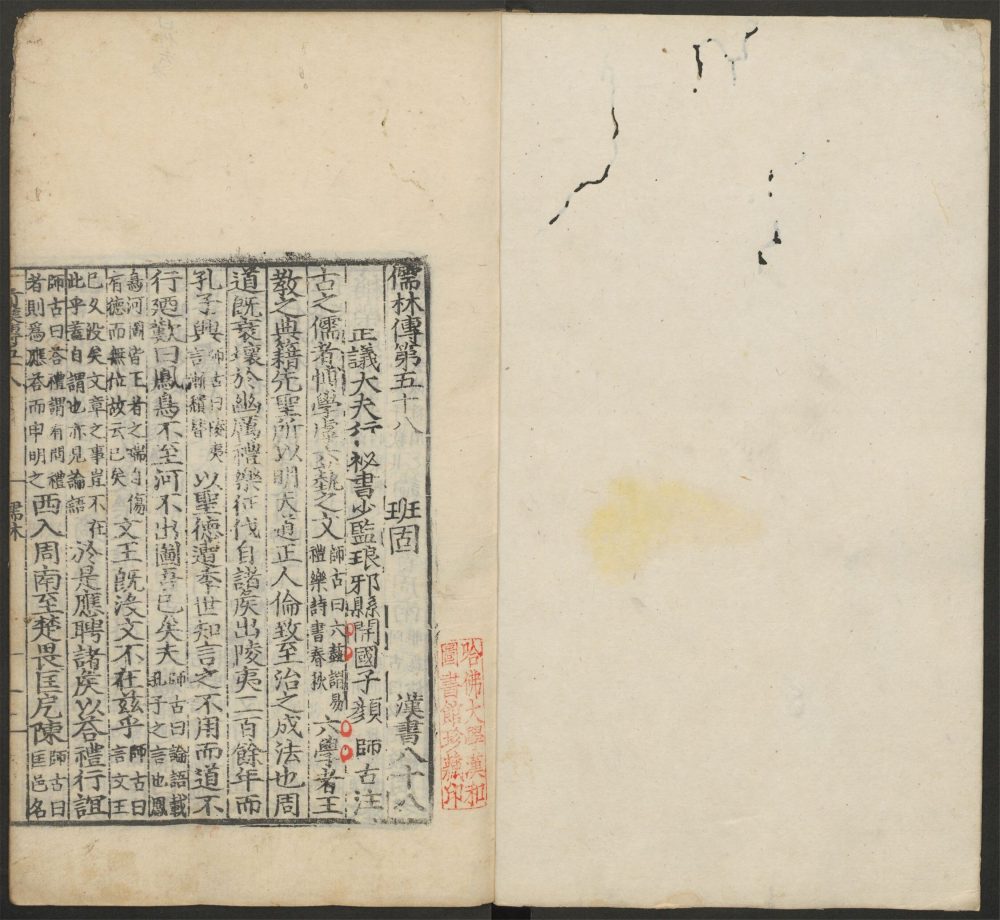 儒林傳第五十八 班固 漢書八十八
正議大夫行祕書少監琅邪縣開國子顏 師古注
古之儒者博學虖六藝之文師古曰六藝謂易禮樂詩書春秋六學者王
教之典籍先聖所以明天道正人倫致至治之成法也周
道既衰壞於幽厲禮樂征伐自諸侯出陵夷二百餘年而
孔子興師古曰陵夷言漸積替以聖德遭季世知言之不用而道不
行廼歎曰鳳鳥不至河不出圖吾已矣夫師古曰論語載孔子之言也鳳
鳥河圖皆王者之瑞自傷有德而無位故云已矣文王旣沒文不在茲乎師古曰言文王
已久沒矣文章之事豈不在此乎蓋自謂也亦見論語於是應聘諸侯以荅禮行誼
師古曰荅禮謂有問禮者則爲應荅而申明之西入周南至楚畏匡戹陳師古曰匡邑名
儒林
哈佛大學漢和
圖書館珍藏印